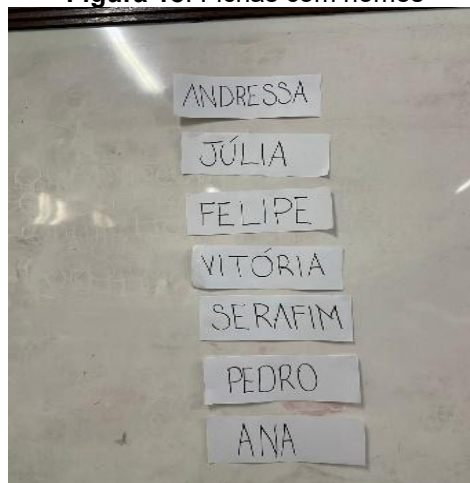 ANDRESSA
JÚLIA
FELIPE
VITÓRIA
SERAFIM
PEDRO
ANA